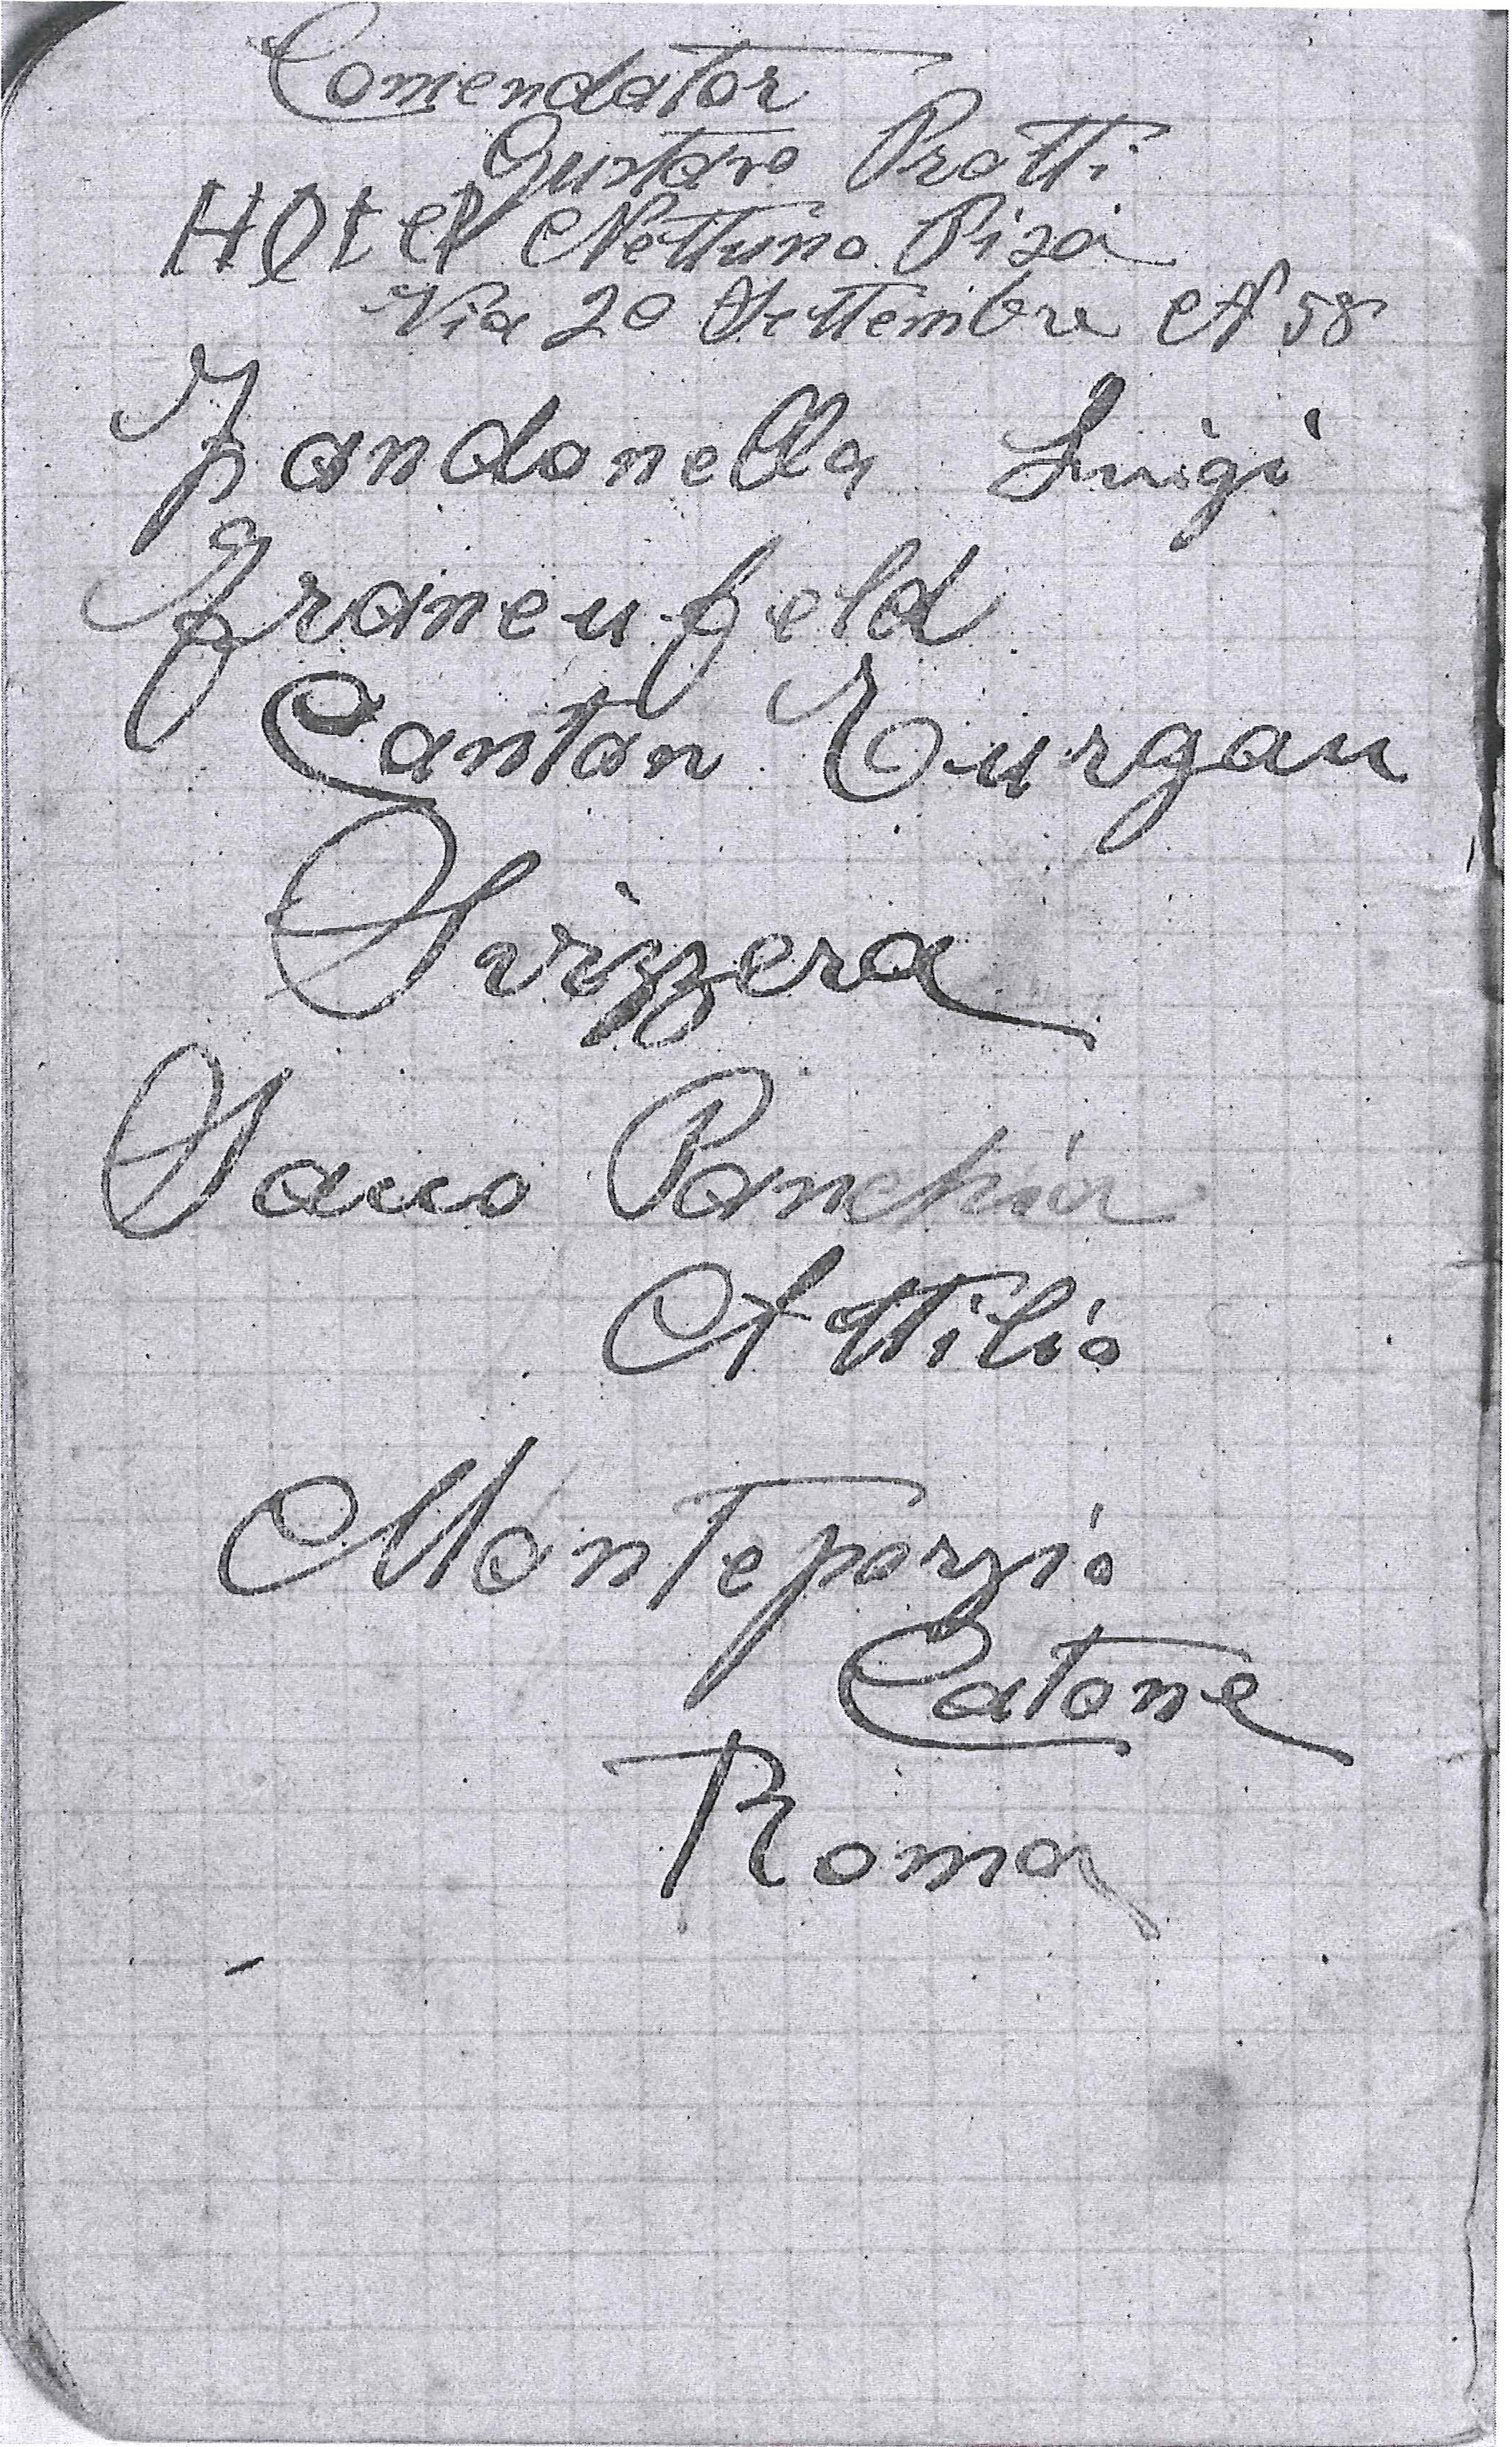 Comendator
Gustavo Protti
HOtel Nettuno Pisa
Via 20 Settembre N 58
Zandonella Luigi
Franeufeld
Canton Turgau
Svizzera
Panchia
Attilio
Monteporzio
Catone
Roma